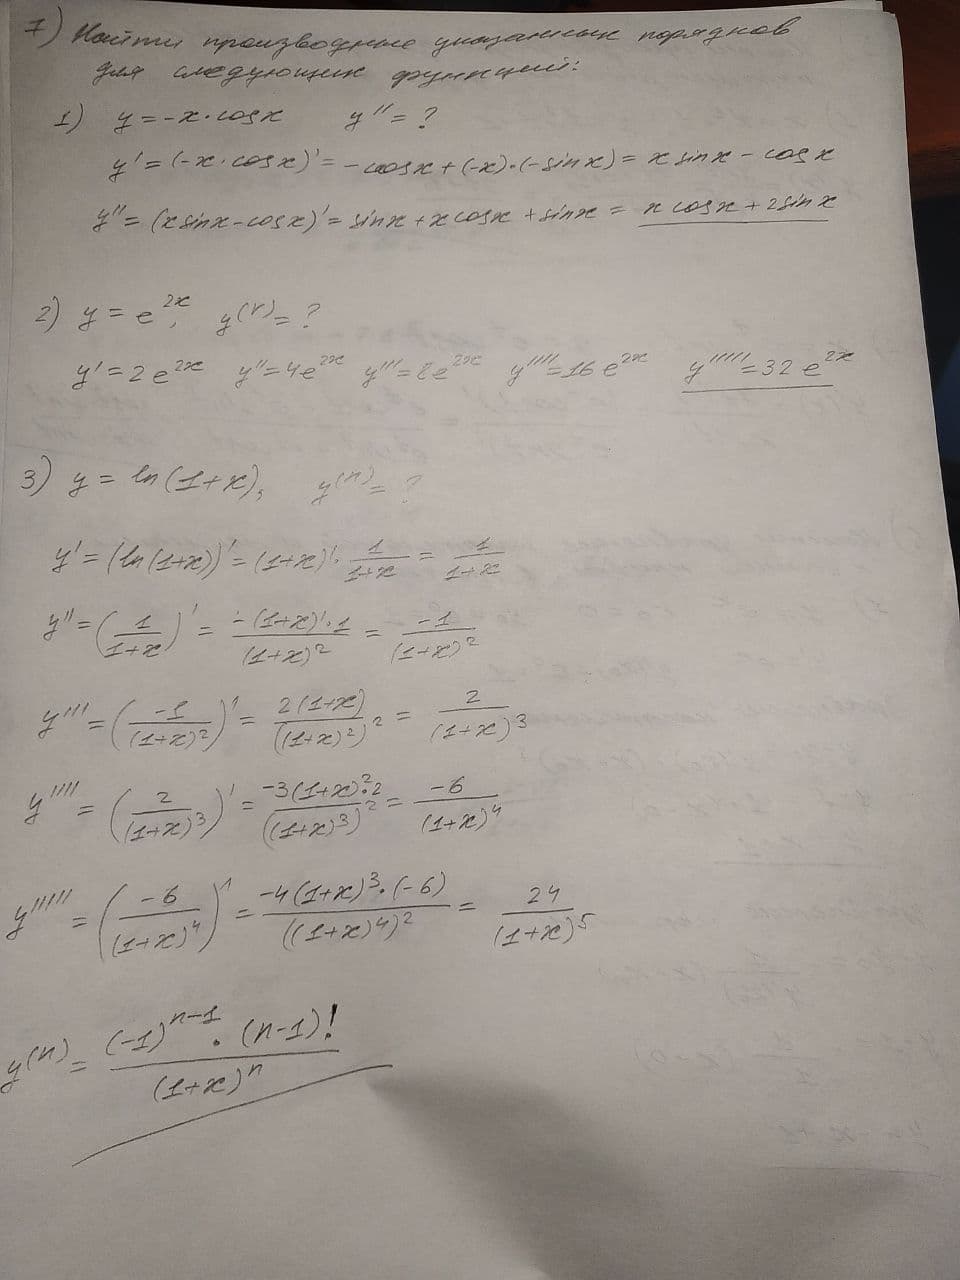 7) Найти производные указанных порядков
для следующих функций:
1) y = -x · cos x y'' = ?
y' = (-x · cos x)' = -cos x + (-x) · (-sin x) = x sin x - cos x
y'' = (x sin x - cos x)' = sin x + x cos x + sin x = x cos x + 2 sin x
2) y = e^{2x}, y^{(V)} = ?
y' = 2e^{2x} y'' = 4e^{2x} y''' = 8e^{2x} y'''' = 16e^{2x} y''''' = 32e^{2x}
3) y = ln(1+x), y^{(n)} = ?
y' = (ln(1+x))' = (1+x)' · \frac{1}{1+x} = \frac{1}{1+x}
y'' = (\frac{1}{1+x})' = \frac{-(1+x)' · 1}{(1+x)^2} = \frac{-1}{(1+x)^2}
y''' = (\frac{-1}{(1+x)^2})' = \frac{2(1+x)}{((1+x)^2)^2} = \frac{2}{(1+x)^3}
y'''' = (\frac{2}{(1+x)^3})' = \frac{-3(1+x)^2 · 2}{((1+x)^3)^2} = \frac{-6}{(1+x)^4}
y''''' = (\frac{-6}{(1+x)^4})' = \frac{-4(1+x)^3 · (-6)}{((1+x)^4)^2} = \frac{24}{(1+x)^5}
y^{(n)} = \frac{(-1)^{n-1} · (n-1)!}{(1+x)^n}